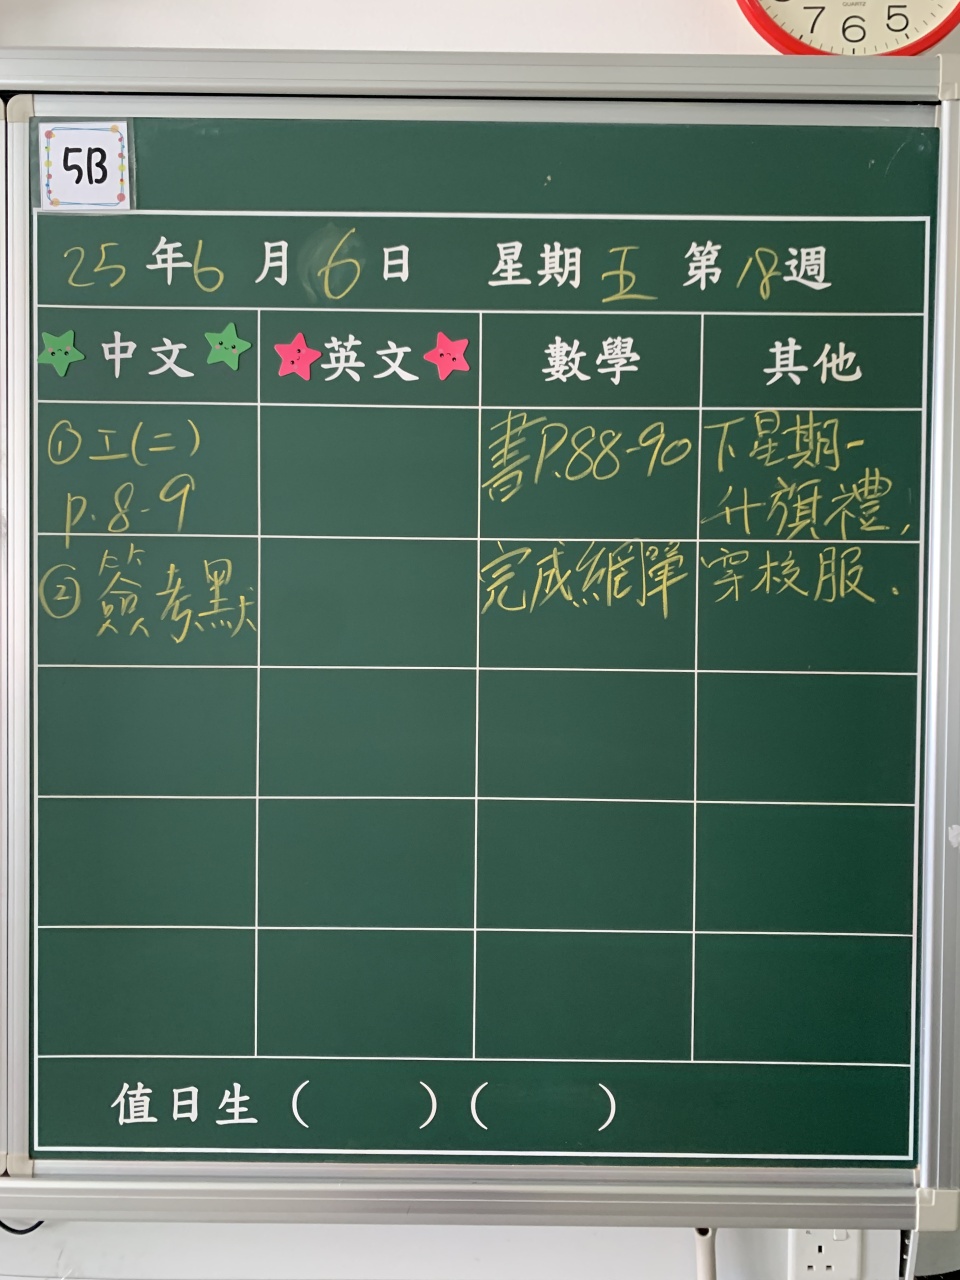 QUARTZ
7 6 5
5B
25年6月6日 星期五 第18週
中文 英文 數學 其他
①工(二)
p.8-9
②簽考默
書P.88-90
完成網單
下星期一
升旗禮,
穿校服.
值日生( )( )